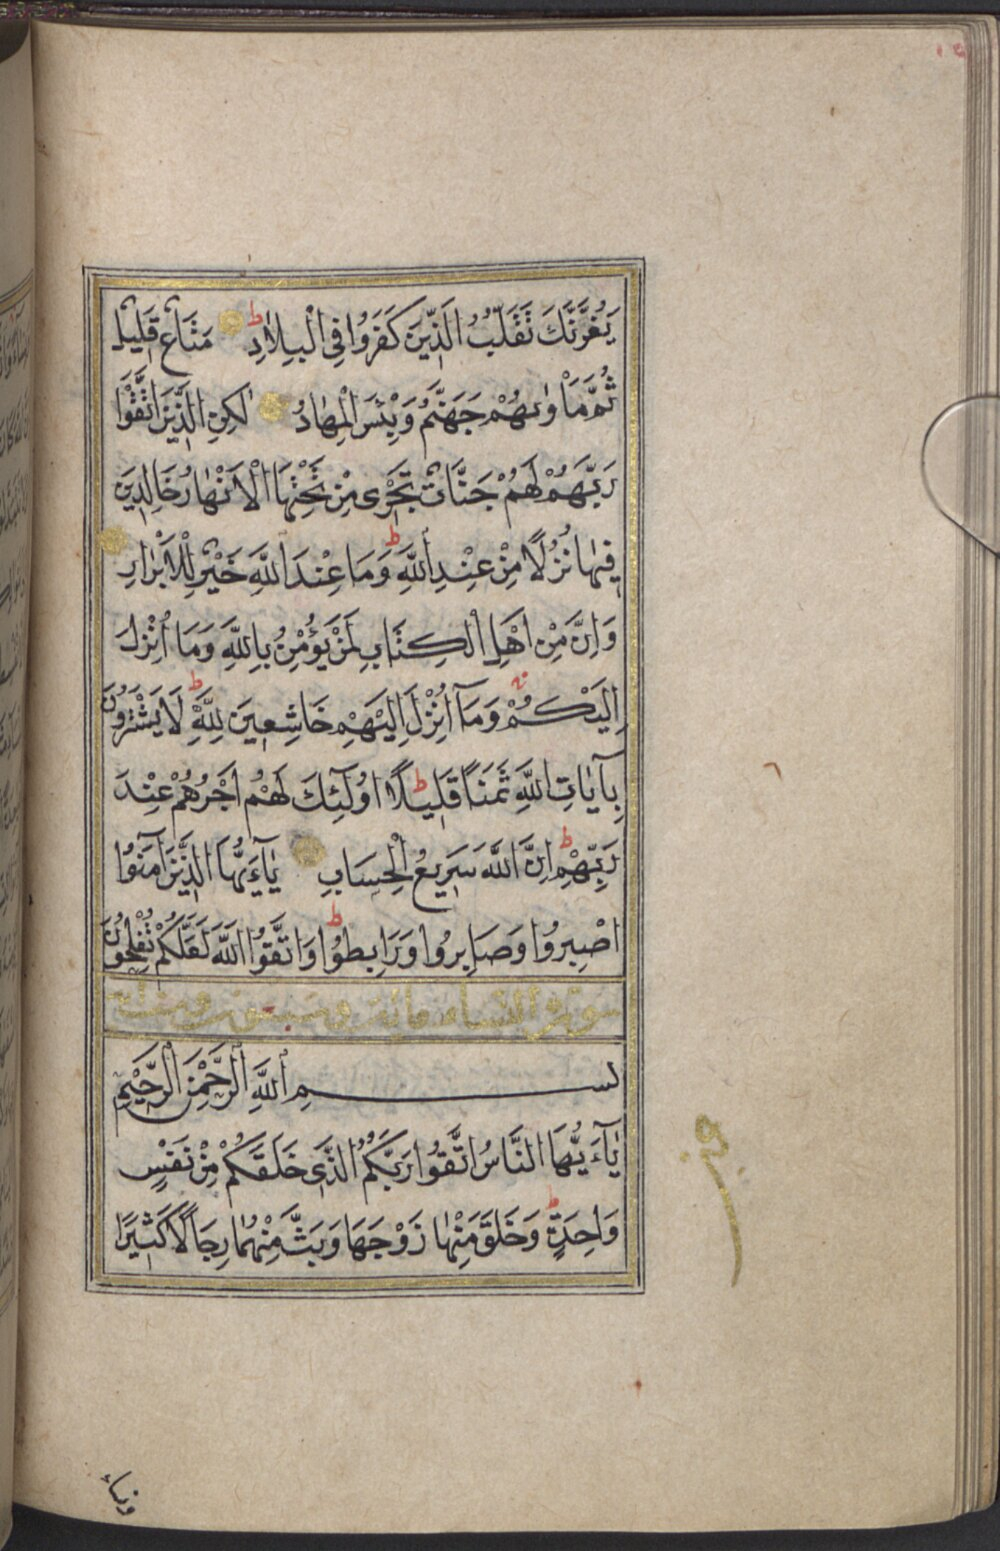 يَغُرَّنَّكَ تَقَلُّبُ الَّذِينَ كَفَرُوا فِي الْبِلَادِ ط مَتَاعٌ قَلِيلٌ
ثُمَّ مَأْوٰيهُمْ جَهَنَّمُ وَبِئْسَ الْمِهَادُ لٰكِنِ الَّذِينَ اتَّقَوْا
رَبَّهُمْ لَهُمْ جَنَّاتٌ تَجْرِي مِنْ تَحْتِهَا الْأَنْهَارُ خَالِدِينَ
فِيهَا نُزُلًا مِنْ عِنْدِ اللَّهِ ط وَمَا عِنْدَ اللَّهِ خَيْرٌ لِلْأَبْرَارِ
وَاِنَّ مِنْ اَهْلِ الْكِتَابِ لَمَنْ يُؤْمِنُ بِاللَّهِ وَمَا اُنْزِلَ
اِلَيْكُمْ وَمَآ اُنْزِلَ اِلَيْهِمْ خَاشِعِينَ لِلَّهِ ط لَا يَشْتَرُونَ
بِآيَاتِ اللَّهِ ثَمَنًا قَلِيلًا ط اُولَٓئِكَ لَهُمْ اَجْرُهُمْ عِنْدَ
رَبِّهِمْ ط اِنَّ اللَّهَ سَرِيعُ الْحِسَابِ يَآءَيُّهَا الَّذِينَ آمَنُوا
اصْبِرُوا وَصَابِرُوا وَرَابِطُوا ط وَاتَّقُوا اللَّهَ لَعَلَّكُمْ تُفْلِحُونَ
سورة النساء مائة وسبعون وست
بِسْمِ اللَّهِ الرَّحْمٰنِ الرَّحِيمِ
يَآءَيُّهَا النَّاسُ اتَّقُوا رَبَّكُمُ الَّذِي خَلَقَكُمْ مِنْ نَفْسٍ
وَاحِدَةٍ ط وَخَلَقَ مِنْهَا زَوْجَهَا وَبَثَّ مِنْهُمَا رِجَالًا كَثِيرًا
ونساء